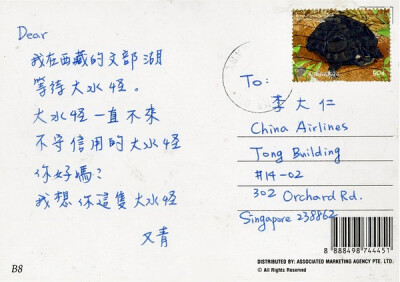 Dear
我在西藏的文部湖
等待大水怪。
大水怪一直不來
不守信用的大水怪
你好嗎？
我想你這隻大水怪
又青
To:
李大仁
China Airlines
Tong Building
#14-02
302 Orchard Rd.
Singapore 238862
8 888498 744451
DISTRIBUTED BY: ASSOCIATED MARKETING AGENCY PTE. LTD.
© All Rights Reserved
B8